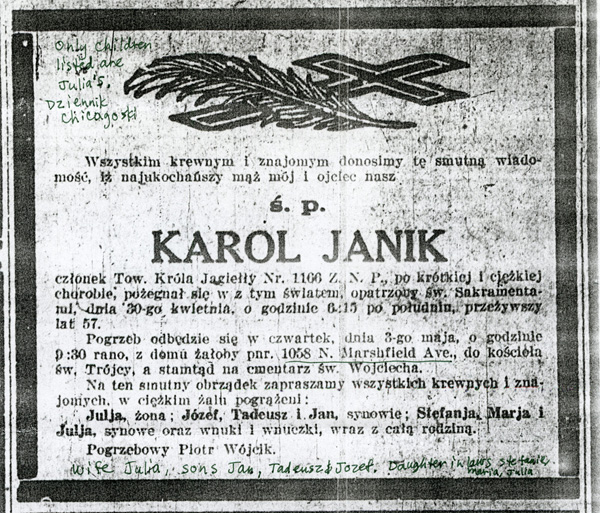 Only children
listed are
Julia's.
Dziennik
Chicagoski
Wszystkim krewnym i znajomym donosimy tę smutną wiado-
mość, iż najukochańszy mąż mój i ojciec nasz
ś. p.
KAROL JANIK
członek Tow. Króla Jagiełły Nr. 1166 Z. N. P., po krótkiej i ciężkiej
chorobie, pożegnał się w z tym światem, opatrzony św. Sakramenta-
mi, dnia 30-go kwietnia, o godzinie 6:15 po południu, przeżywszy
lat 57.
Pogrzeb odbędzie się w czwartek, dnia 3-go maja, o godzinie
9:30 rano, z domu żałoby pnr. 1058 N. Marshfield Ave., do kościoła
św. Trójcy, a stamtąd na cmentarz św. Wojciecha.
Na ten smutny obrządek zapraszamy wszystkich krewnych i zna-
jomych, w ciężkim żalu pogrążeni:
Julja, żona; Józef, Tadeusz i Jan, synowie; Stefanja, Marja i
Julja, synowe oraz wnuki i wnuczki, wraz z całą rodziną.
Pogrzebowy Piotr Wójcik.
Wife Julia, sons Jan, Tadeusz & Jozef. Daughter in laws Stefania
Maria, Julia